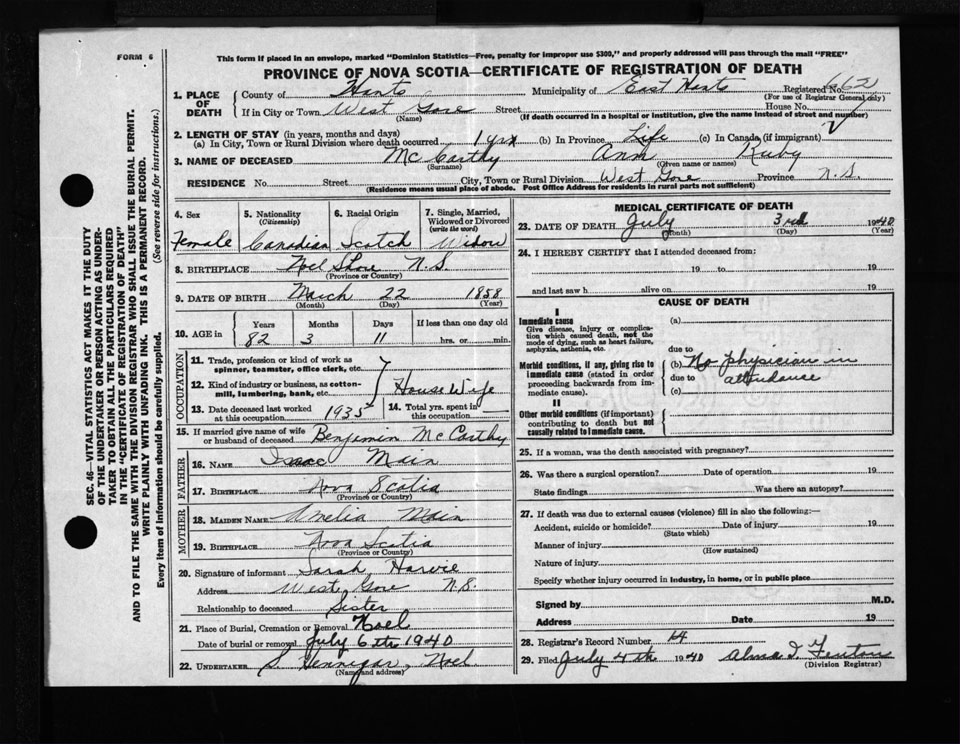 FORM 6
This form if placed in an envelope, marked "Dominion Statistics—Free, penalty for improper use $300," and properly addressed will pass through the mail "FREE"
PROVINCE OF NOVA SCOTIA—CERTIFICATE OF REGISTRATION OF DEATH
1. PLACE OF DEATH
County of Hants Municipality of East Hants Registered No. 662
(For use of Registrar General only)
If in City or Town West Gore Street House No.
(Name) (If death occurred in a hospital or institution, give the name instead of street and number)
2. LENGTH OF STAY (in years, months and days)
(a) In City, Town or Rural Division where death occurred 1 yrs (b) In Province Life (c) In Canada (if immigrant)
3. NAME OF DECEASED McCarthy Ann Ruby
(Surname) (Given name or names)
RESIDENCE No. Street City, Town or Rural Division West Gore Province N.S.
(Residence means usual place of abode. Post Office Address for residents in rural parts not sufficient)
4. Sex Female
5. Nationality (Citizenship) Canadian
6. Racial Origin Scotch
7. Single, Married, Widowed or Divorced (write the word) Widow
8. BIRTHPLACE Noel Shore N.S.
(Province or Country)
9. DATE OF BIRTH March 22 1858
(Month) (Day) (Year)
10. AGE in Years Months Days If less than one day old
82 3 11 hrs. or min.
OCCUPATION
11. Trade, profession or kind of work as spinner, teamster, office clerk, etc.
12. Kind of industry or business, as cotton-mill, lumbering, bank, etc. House Wife
13. Date deceased last worked at this occupation 1935
14. Total yrs. spent in this occupation
15. If married give name of wife or husband of deceased Benjimin McCarthy
FATHER
16. NAME Isaac Main
17. BIRTHPLACE Nova Scotia
(Province or Country)
MOTHER
18. MAIDEN NAME Amelia Main
19. BIRTHPLACE Nova Scotia
(Province or Country)
20. Signature of informant Sarah Harvie
Address West Gore N.S.
Relationship to deceased Sister
21. Place of Burial, Cremation or Removal Noel
Date of burial or removal July 6th 1940
22. UNDERTAKER S. Hennigar, Noel
(Name and address)
MEDICAL CERTIFICATE OF DEATH
23. DATE OF DEATH July 3rd 1940
(Month) (Day) (Year)
24. I HEREBY CERTIFY that I attended deceased from:
19 to 19
and last saw h alive on 19
CAUSE OF DEATH
I
Immediate cause
Give disease, injury or complication which caused death, not the mode of dying, such as heart failure, asphyxia, asthenia, etc.
(a)
due to
Morbid conditions, if any, giving rise to immediate cause (stated in order proceeding backwards from immediate cause).
(b) No physician in
due to attendance
(c)
II
Other morbid conditions (if important) contributing to death but not causally related to immediate cause.
25. If a woman, was the death associated with pregnancy?
26. Was there a surgical operation? Date of operation 19
State findings Was there an autopsy?
27. If death was due to external causes (violence) fill in also the following:—
Accident, suicide or homicide? Date of injury 19
(State which)
Manner of injury
(How sustained)
Nature of injury
Specify whether injury occurred in industry, in home, or in public place
Signed by M.D.
Address Date 19
28. Registrar's Record Number 14
29. Filed July 4th 1940 Alma I. Fenton
(Division Registrar)
SEC. 46—VITAL STATISTICS ACT MAKES IT THE DUTY
OF THE UNDERTAKER OR PERSON ACTING AS UNDER-
TAKER TO OBTAIN ALL THE PARTICULARS REQUIRED
IN THE "CERTIFICATE OF REGISTRATION OF DEATH"
AND TO FILE THE SAME WITH THE DIVISION REGISTRAR WHO SHALL ISSUE THE BURIAL PERMIT.
WRITE PLAINLY WITH UNFADING INK. THIS IS A PERMANENT RECORD.
Every item of information should be carefully supplied. (See reverse side for instructions.)